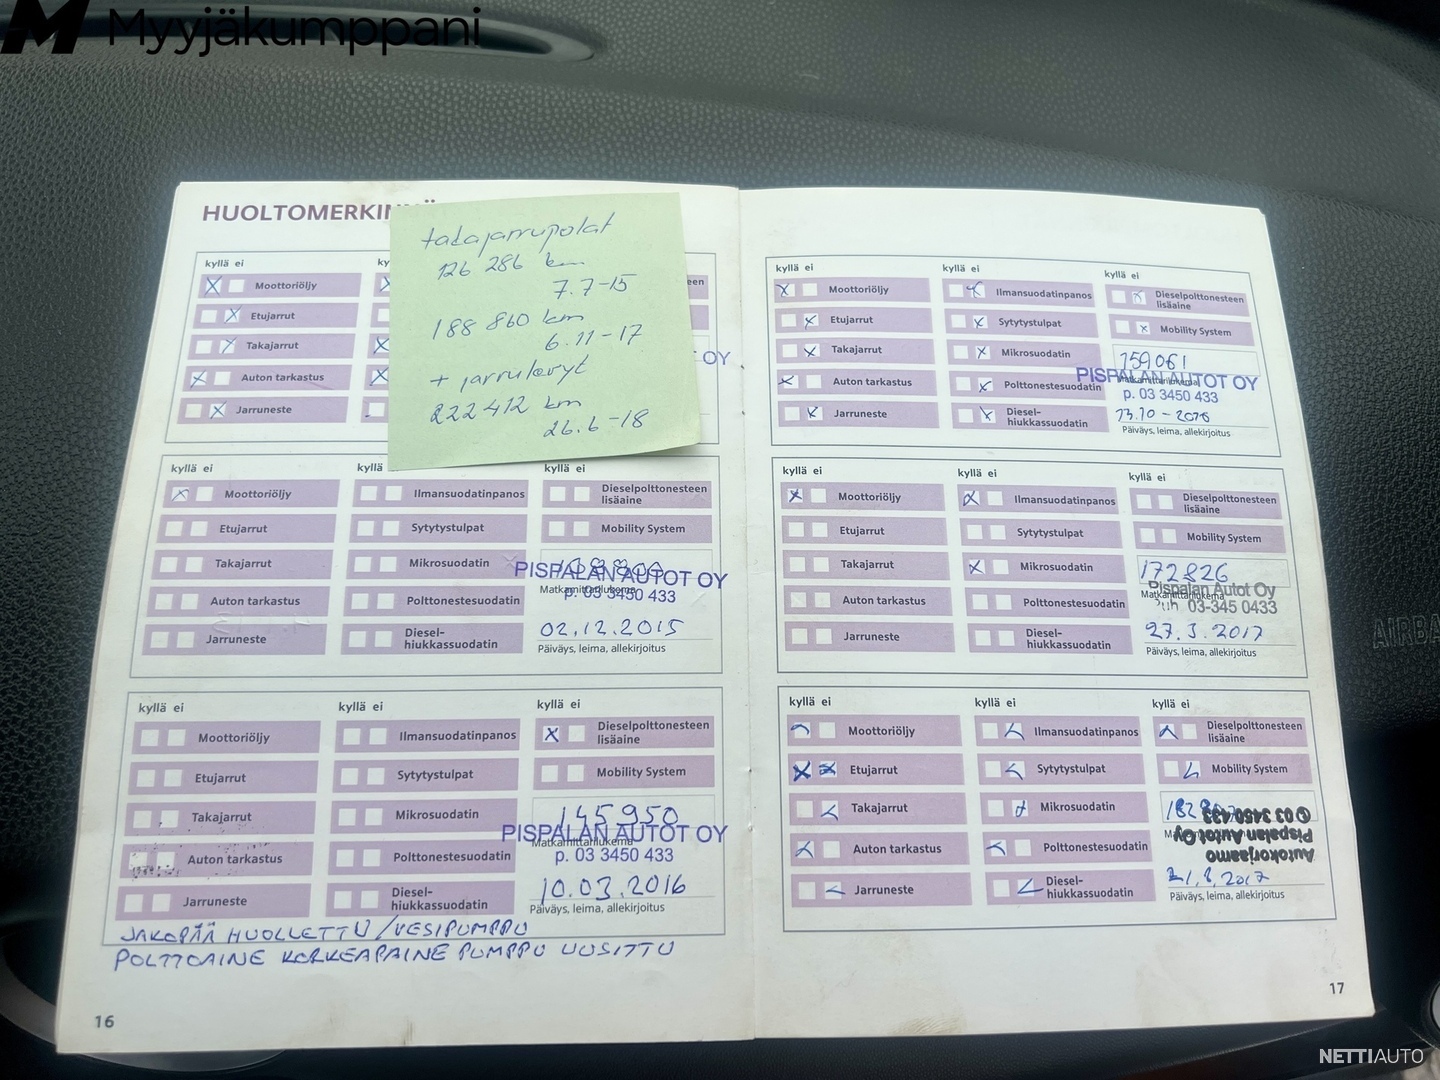 Myyjäkumppani
HUOLTOMERKIN
takajarrupalat
126 286 km
7.7-15
188 860 km
6.11-17
+ jarrulevyt
222 412 km
26.6-18
kyllä ei
ky
Moottoriöljy
een
Etujarrut
Takajarrut
OY
Auton tarkastus
Jarruneste
kyllä ei
kyllä
kyllä ei
Moottoriöljy
Ilmansuodatinpanos
Dieselpolttonesteen
lisäaine
Etujarrut
Sytytystulpat
Mobility System
Takajarrut
Mikrosuodatin
PISPALAN AUTOT OY
Matkamittarilukema
p. 03 3450 433
Auton tarkastus
Polttonestesuodatin
02.12.2015
Jarruneste
Diesel-
hiukkassuodatin
Päiväys, leima, allekirjoitus
kyllä ei
kyllä ei
kyllä ei
Moottoriöljy
Ilmansuodatinpanos
Dieselpolttonesteen
lisäaine
Etujarrut
Sytytystulpat
Mobility System
Takajarrut
Mikrosuodatin
145950
PISPALAN AUTOT OY
Matkamittarilukema
p. 03 3450 433
Auton tarkastus
Polttonestesuodatin
10.03.2016
Jarruneste
Diesel-
hiukkassuodatin
Päiväys, leima, allekirjoitus
JAKOPÄÄ HUOLLETTU/VESIPUMPPU
POLTTOAINE KORKEAPAINE PUMPPU UUSITTU
16
kyllä ei
kyllä ei
kyllä ei
Moottoriöljy
Ilmansuodatinpanos
Dieselpolttonesteen
lisäaine
Etujarrut
Sytytystulpat
Mobility System
Takajarrut
Mikrosuodatin
159061
PISPALAN AUTOT OY
Matkamittarilukema
p. 03 3450 433
Auton tarkastus
Polttonestesuodatin
13.10-2016
Jarruneste
Diesel-
hiukkassuodatin
Päiväys, leima, allekirjoitus
kyllä ei
kyllä ei
kyllä ei
Moottoriöljy
Ilmansuodatinpanos
Dieselpolttonesteen
lisäaine
Etujarrut
Sytytystulpat
Mobility System
Takajarrut
Mikrosuodatin
172826
Pispalan Autot Oy
Matkamittarilukema
Puh. 03-345 0433
Auton tarkastus
Polttonestesuodatin
27.3.2017
Jarruneste
Diesel-
hiukkassuodatin
Päiväys, leima, allekirjoitus
kyllä ei
kyllä ei
kyllä ei
Moottoriöljy
Ilmansuodatinpanos
Dieselpolttonesteen
lisäaine
Etujarrut
Sytytystulpat
Mobility System
Takajarrut
Mikrosuodatin
Autokorjaamo
Pispalan Autot Oy
03 3450433
Auton tarkastus
Polttonestesuodatin
Jarruneste
Diesel-
hiukkassuodatin
Päiväys, leima, allekirjoitus
17
AIRBA
NETTIAUTO